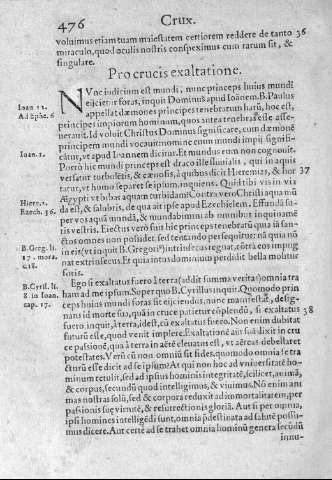 476
Crux.
voluimus etiam tuam maiestatem certiorem reddere de tanto 36
miraculo, quod oculis nostris conspeximus cum rarum sit, &
singulare.
Pro crucis exaltatione.
NVnc iudicium est mundi, nunc princeps huius mundi
eiicietur foras, inquit Dominus apud Ioanem. B. Paulus
Ioan 12.
appellat dæmones principes tenebrarum harũ, hoc est,
Ad Ephe. 6
principes impiorum hominum, quos antea tenebras esse asse-
uerauit. Id voluit Christus Dominus significare, cum dæmonē
principem mundi vocauit nomine enim mundi impii signifi-
Ioan. 1.
cãtur, vt apud Ioannem dicitur. Et mundus eum non cognouit.
Porrò hic mundi princeps est draco ille fluuialis, qui in aquis
versatur turbulētis, & cænosis, à quibus dicit Hieremias, & hor 37
tatur, vt homo separet se ipsum, inquiens. Quid tibi vis in via
Hiere. 2.
Ægypti vt bibas aquam turbidam? Contra vero Christi aqua mũ
Ezech. 36.
da est, & salubris, de qua ait ipse apud Ezechielem. Effundã su-
per vos aquã mundã, & mundabimini ab omnibus inquiname
tis vestris. Eiectus vero fuit hic princeps tenebrarũ quia iã san-
B. Greg. li.
ctos omnes non possidet, sed tentando persequitur: nã quia nõ
17. mora.
in eis (vt inquit B. Gregori⁹) intrinsecus regnat, cõtra eos impug
c. 18.
nat extrinsecus. Et quia intus dominium perdidit bella molitur
foris.
B. Cyril. li.
Ego si exaltatus fuero à terra (addit summa veritas) omnia tra
8 in Ioan.
ham ad me ipsum. Super quo B. Cyrillus inquit. Quomodo prin
cap. 17.
ceps huius mundi foras sit eiiciendus, nunc manifestat, desig-
nans id morte sua, quã in cruce patietur cõplendũ, si exaltatus 38
fuero inquit, à terra, id est, cũ exaltatus fuero. Non enim dubitat
futurũ esse, quod venit implere. Exaltationē aũt suã dixit in cru
ce passionē, qua à terra in aērē eleuatus est, vt aēreas debellaret
potestates. Verũ cũ non omniũ sit fides, quomodo omnia se tra
cturũ esse dicit ad se ipsum? At qui non hoc ad vniuersitatē ho-
minum retulit, sed ad ipsius hominis integritatē, scilicet, animã,
& corpus, secundũ quod intelligimus, & viuimus. Nõ enim ani
mas nostras solũ, sed & corpora reduxit ad immortalitatem, per
passionis suę virtutē, & resurrectionis gloriã. Aut si per omnia,
ipsi homines intelligēdi sunt, omnia p̃destinata ad salutē possu-
mus dicere. Aut certe ad se trahet omnia hominũ genera secũdũ
innu-